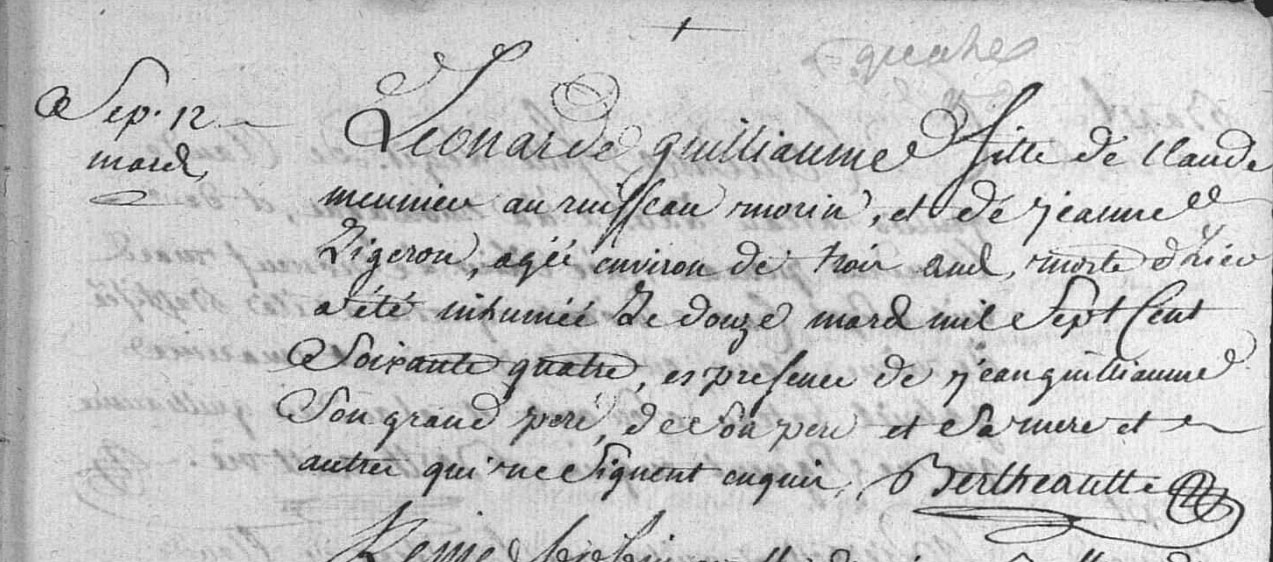 quatre
Sep. 12
mars
Leonarde guilliaume fille de Claude
meunier au ruisseau morin, et de jeanne
Ligeron, agée environ de trois ans, morte d'hier
a été inhumée Le douze mars mil Sept Cent
Soixante quatre, es presence de jean guilliaume
Son grand pere, de Son pere et Sa mere et
autres qui ne Signent enquis. Bertheault
Reine